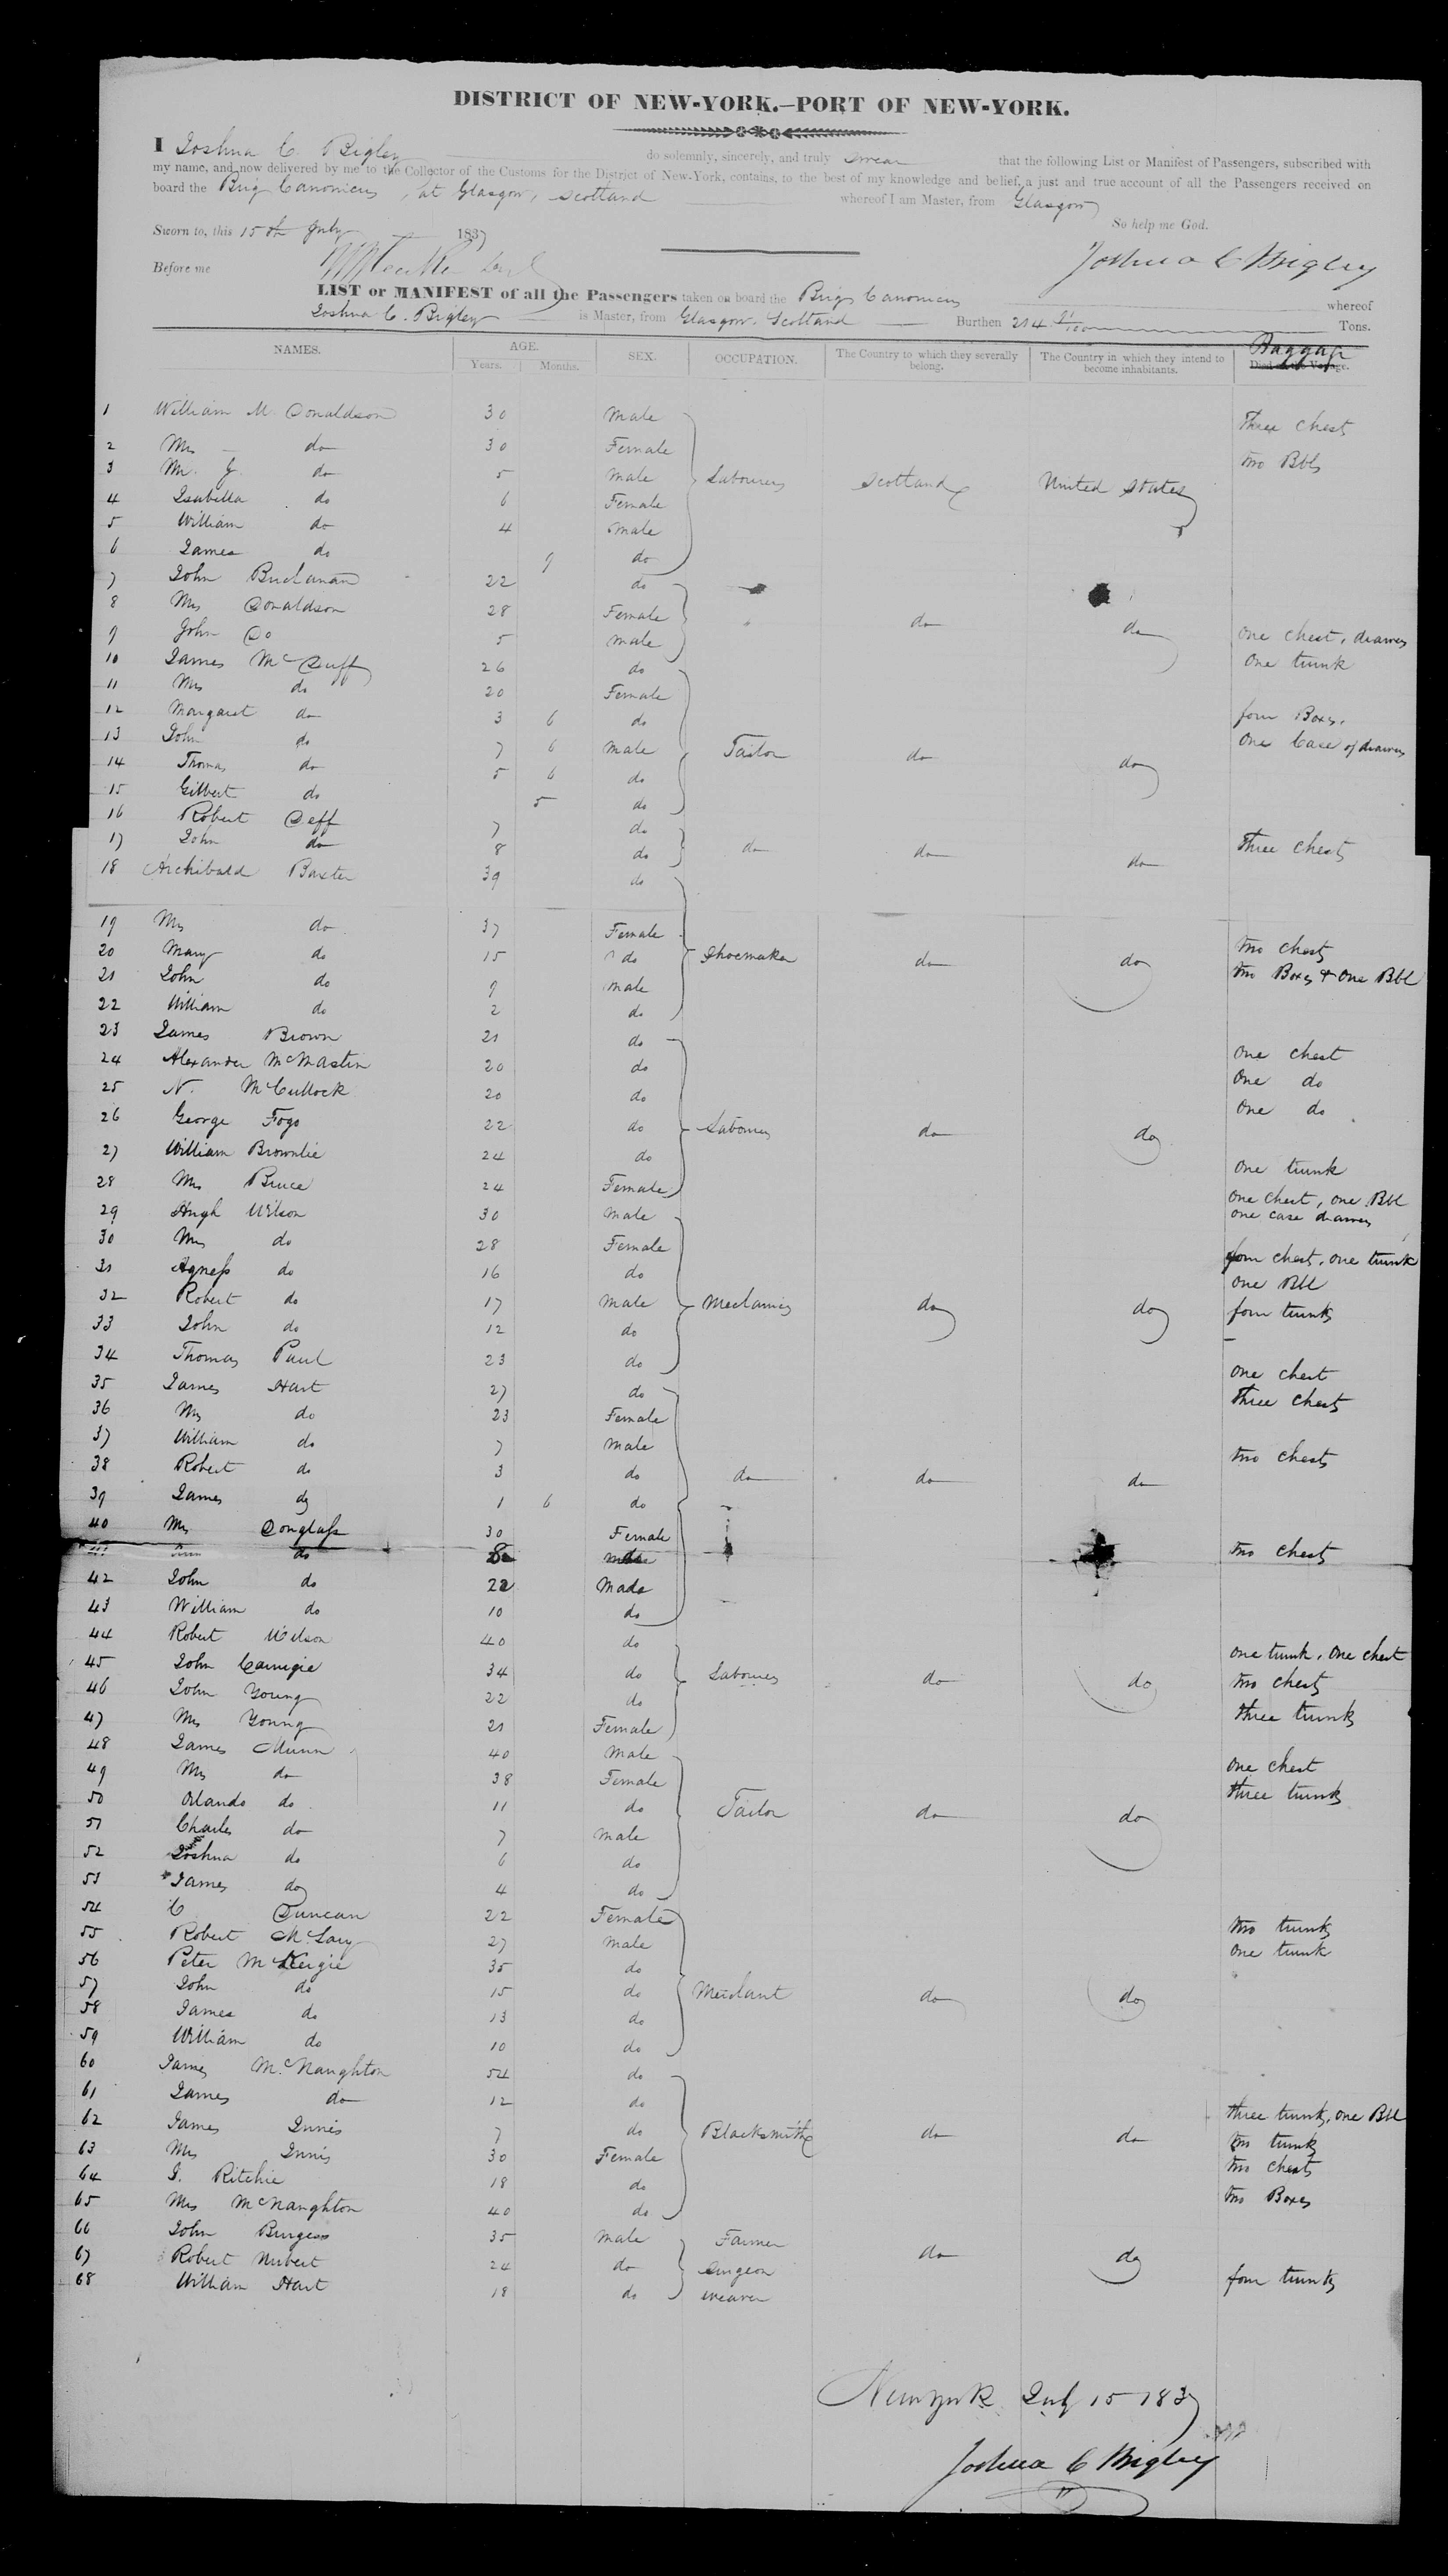 DISTRICT OF NEW-YORK.—PORT OF NEW-YORK.
I Joshua C. Bigley do solemnly, sincerely, and truly swear that the following List or Manifest of Passengers, subscribed with
my name, and now delivered by me to the Collector of the Customs for the District of New-York, contains, to the best of my knowledge and belief, a just and true account of all the Passengers received on
board the Brig Canonicus, at Glasgow, Scotland whereof I am Master, from Glasgow
So help me God.
Sworn to, this 15th July 1837
Joshua C Bigley
Before me
LIST or MANIFEST of all the Passengers taken on board the Brig Canonicus whereof
Joshua C. Bigley is Master, from Glasgow, Scotland Burthen 214 Tons.
NAMES. AGE. Years. Months. SEX. OCCUPATION. The Country to which they severally belong. The Country in which they intend to become inhabitants. Baggage
1 William M. Donaldson 30 Male three chest
2 Mrs — do 30 Female two Bbls
3 Mr. J. do 5 Male Labourers Scotland United States
4 Isabella do 6 Female
5 William do 4 Male
6 James do 9 do
7 John Buchanan 22 do
8 Mrs Donaldson 28 Female do do
9 John Do 5 Male one chest, drawers
10 James McDuff 26 do one trunk
11 Mrs do 20 Female
12 Margaret do 3 6 do four Boxes.
13 John do 7 6 Male Tailor do do One Case of drawers
14 Thomas do 5 6 do
15 Gilbert do 5 do
16 Robert Deff 7 do
17 John do 8 do do do do three chests
18 Archibald Baxter 39 do
19 Mrs do 37 Female
20 Mary do 15 do Shoemaker do do two chests
21 John do 9 Male two Boxes & One Bbl
22 William do 2 do
23 James Brown 21 do
24 Alexander McMastin 20 do one chest
25 N. McCullock 20 do One do
26 George Fogo 22 do Labourers do do One do
27 William Brownlie 24 do
28 Mrs Bruce 24 Female one trunk
29 Hugh Wilson 30 Male one chest, one Bbl
one case drawers
30 Mrs do 28 Female
31 Agness do 16 do four chest, one trunk
one Bbl
32 Robert do 17 Male Mechanics do do four trunks
33 John do 12 do
34 Thomas Paul 23 do
35 James Hart 27 do one chest
36 Mrs do 23 Female three chests
37 William do 7 Male
38 Robert do 3 do do do do two chests
39 James do 1 6 do
40 Mrs Douglass 30 Female
41 do two chests
42 John do 22 Male
43 William do 10 do
44 Robert Wilson 40 do
45 John Carnigie 34 do Labourers do do one trunk, One chest
46 John Young 22 do two chests
47 Mrs Young 21 Female three trunks
48 James Munn 40 Male
49 Mrs do 38 Female one chest
50 Orlando do 11 do Tailor do do three trunks
51 Charles do 7 Male
52 Joshua do 6 do
53 James do 4 do
54 C Duncan 22 Female
55 Robert McLary 27 Male two trunks
56 Peter McKergie 35 do one trunk
57 John do 15 do Merchant do do
58 James do 13 do
59 William do 10 do
60 James McNaughton 54 do
61 James do 12 do
62 James Innis 7 do Blacksmith do do three trunks, one Bbl
63 Mrs Innis 30 Female two trunks
64 J. Ritchie 18 do two chests
65 Mrs McNaughton 40 do two Boxes
66 John Burgess 35 Male Farmer
67 Robert Nubert 24 do Surgeon do do
68 William Hart 18 do weaver four trunks
New York July 15 1837
Joshua C Bigley